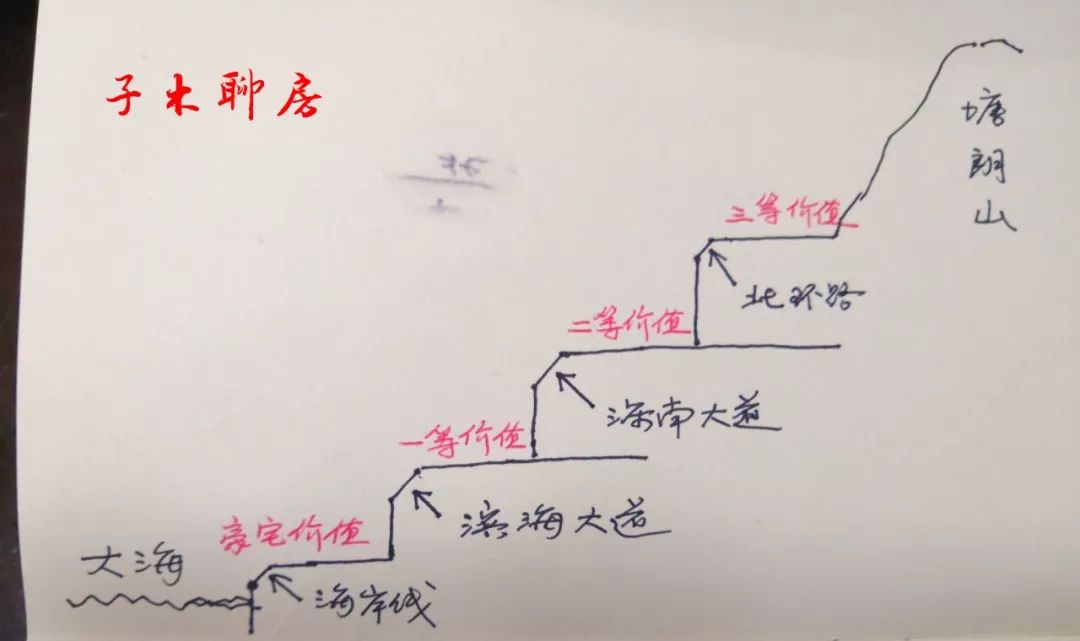 子木聊房
塘朗山
三等价值
北环路
二等价值
深南大道
一等价值
滨海大道
豪宅价值
大海
海岸线